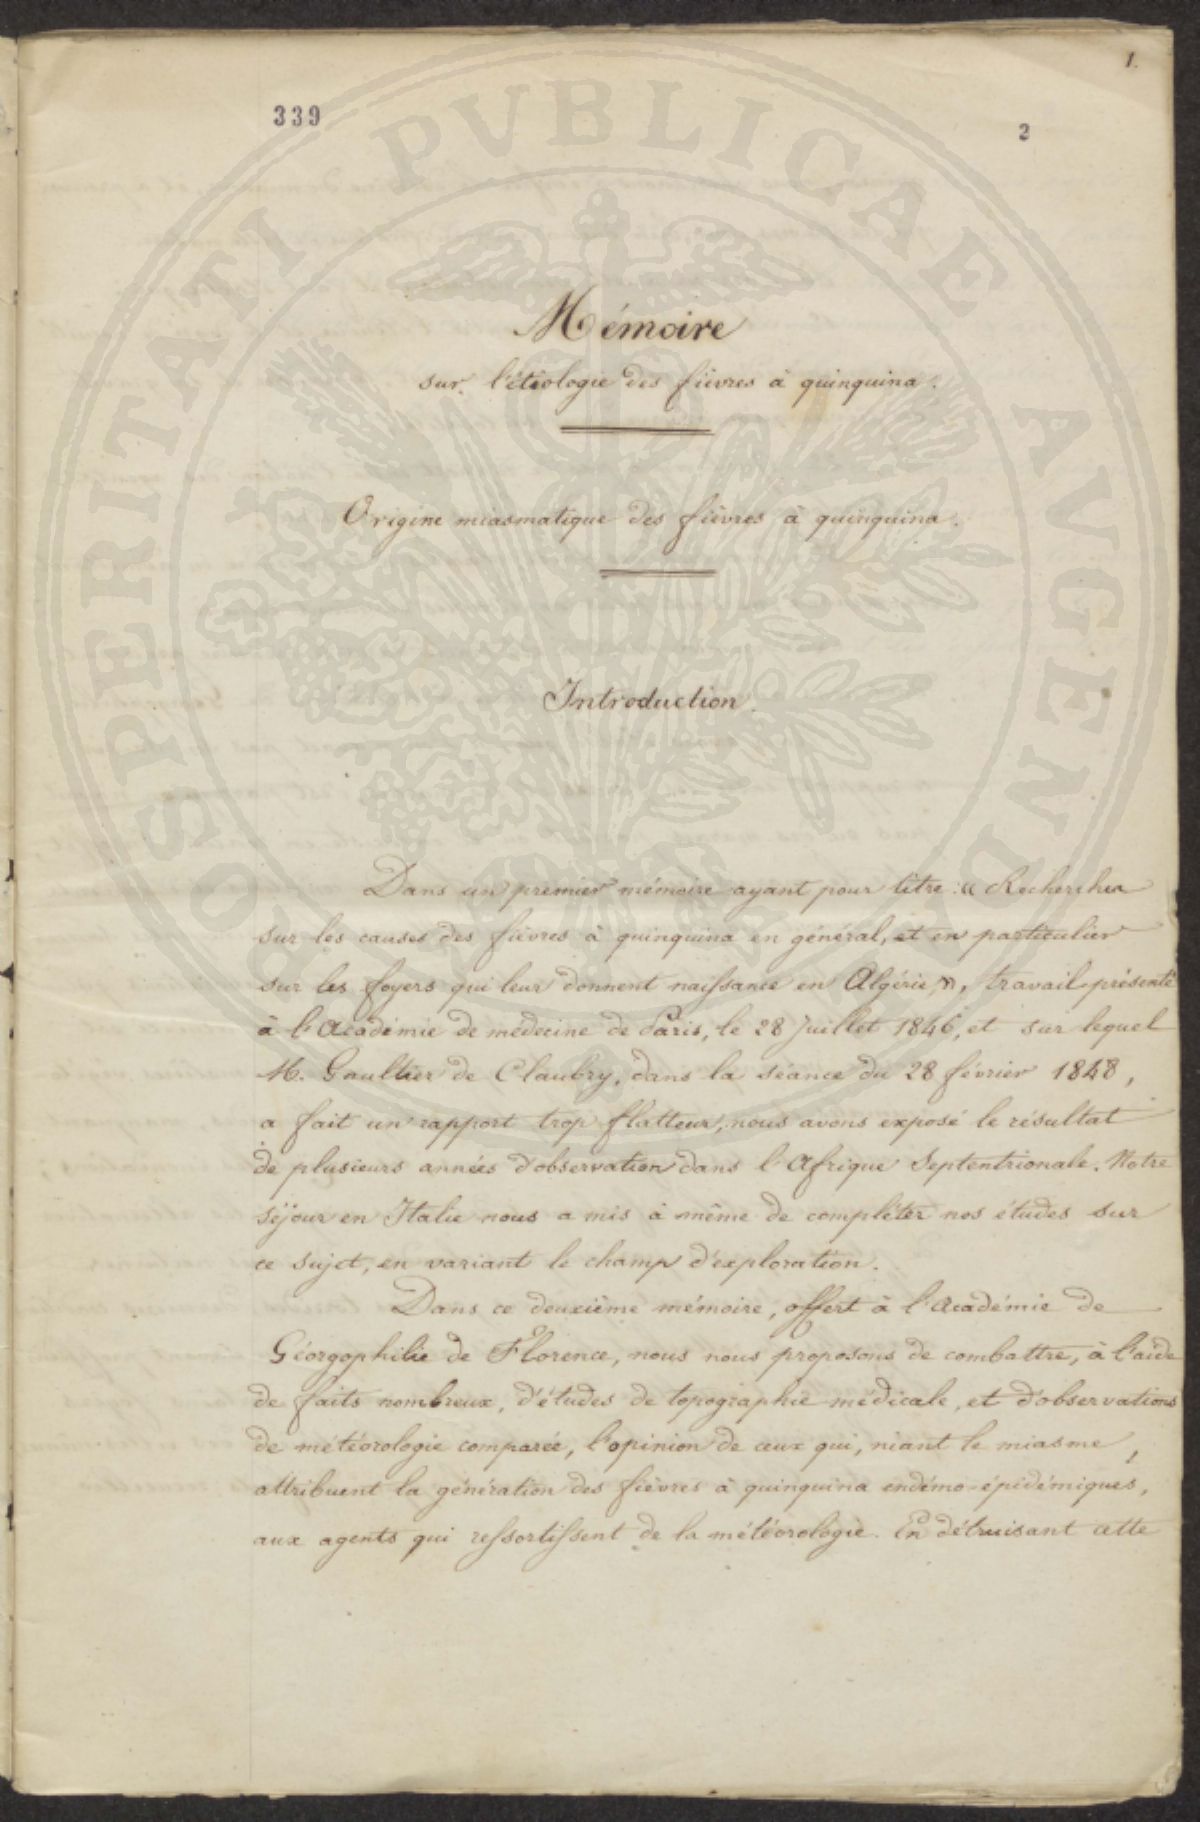 1.
339
2
PROSPERITATI PUBLICAE AUGENDAE
Mémoire
sur l'étiologie des fièvres à quinquina.
Origine miasmatique des fièvres à quinquina.
Introduction.
Dans un premier mémoire ayant pour titre : « Recherches
sur les causes des fièvres à quinquina en général, et en particulier
sur les foyers qui leur donnent naissance en Algérie », travail présenté
à l'Académie de médecine de Paris, le 28 Juillet 1846, et sur lequel
M. Gaultier de Claubry, dans la séance du 28 février 1848,
a fait un rapport trop flatteur, nous avons exposé le résultat
de plusieurs années d'observation dans l'Afrique Septentrionale. Notre
séjour en Italie nous a mis à même de compléter nos études sur
ce sujet, en variant le champ d'exploration.
Dans ce deuxième mémoire, offert à l'Académie de
Géorgophilie de Florence, nous nous proposons de combattre, à l'aide
de faits nombreux, d'études de topographie médicale, et d'observations
de météorologie comparée, l'opinion de ceux qui, niant le miasme,
attribuent la génération des fièvres à quinquina endémo-épidémiques,
aux agents qui ressortissent de la météorologie. En détruisant cette